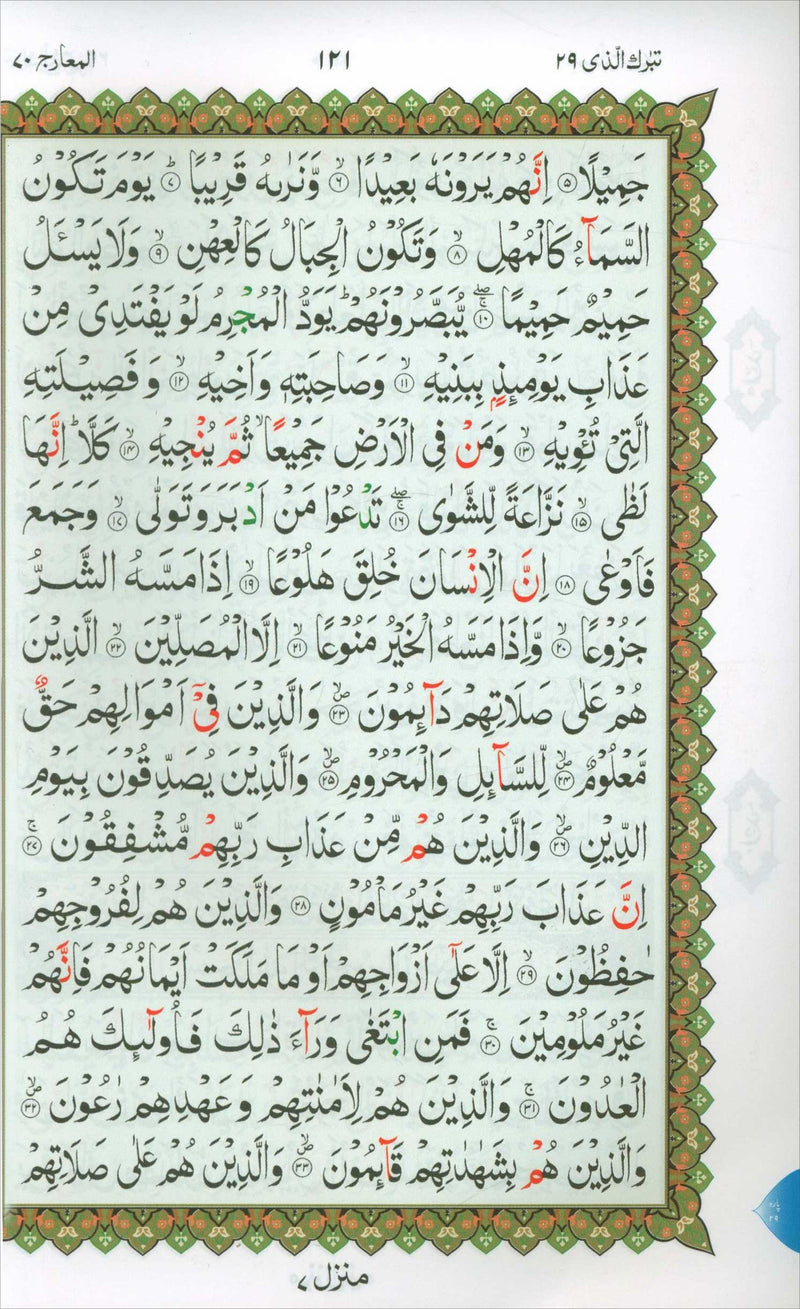 تبٰرك الّذی ۲۹ ۱۲۱ المعارج ۷۰
جَمِيْلًا ۵ اِنَّهُمْ يَرَوْنَهٗ بَعِيْدًا ۶ وَّنَرٰىهُ قَرِيْبًا ؕ ۷ يَوْمَ تَكُوْنُ
السَّمَآءُ كَالْمُهْلِ ۸ وَتَكُوْنُ الْجِبَالُ كَالْعِهْنِ ۹ وَلَا يَسْـَٔلُ
حَمِيْمٌ حَمِيْمًا ۱۰ يُّبَصَّرُوْنَهُمْ ؕ يَوَدُّ الْمُجْرِمُ لَوْ يَفْتَدِیْ مِنْ
عَذَابِ يَوْمِئِذٍۭ بِبَنِيْهِ ۱۱ وَصَاحِبَتِهٖ وَاَخِيْهِ ۱۲ وَ فَصِيْلَتِهِ
الَّتِیْ تُـْٔوِيْهِ ۱۳ وَمَنْ فِی الْاَرْضِ جَمِيْعًا ۙ ثُمَّ يُنْجِيْهِ ۱۴ كَلَّا ؕ اِنَّهَا
لَظٰی ۱۵ نَزَّاعَةً لِّلشَّوٰی ۱۶ تَدْعُوْا مَنْ اَدْبَرَ وَتَوَلّٰی ۱۷ وَجَمَعَ
فَاَوْعٰی ۱۸ اِنَّ الْاِنْسَانَ خُلِقَ هَلُوْعًا ۱۹ اِذَا مَسَّهُ الشَّرُّ
جَزُوْعًا ۲۰ وَّاِذَا مَسَّهُ الْخَيْرُ مَنُوْعًا ۲۱ اِلَّا الْمُصَلِّيْنَ ۲۲ الَّذِيْنَ
هُمْ عَلٰی صَلَاتِهِمْ دَآئِمُوْنَ ۲۳ وَالَّذِيْنَ فِیْۤ اَمْوَالِهِمْ حَقٌّ
مَّعْلُوْمٌ ۲۴ لِّلسَّآئِلِ وَالْمَحْرُوْمِ ۲۵ وَالَّذِيْنَ يُصَدِّقُوْنَ بِيَوْمِ
الدِّيْنِ ۲۶ وَالَّذِيْنَ هُمْ مِّنْ عَذَابِ رَبِّهِمْ مُّشْفِقُوْنَ ۲۷
اِنَّ عَذَابَ رَبِّهِمْ غَيْرُ مَاْمُوْنٍ ۲۸ وَالَّذِيْنَ هُمْ لِفُرُوْجِهِمْ
حٰفِظُوْنَ ۲۹ اِلَّا عَلٰۤی اَزْوَاجِهِمْ اَوْ مَا مَلَكَتْ اَيْمَانُهُمْ فَاِنَّهُمْ
غَيْرُ مَلُوْمِيْنَ ۳۰ فَمَنِ ابْتَغٰی وَرَآءَ ذٰلِكَ فَاُولٰٓئِكَ هُمُ
الْعٰدُوْنَ ۳۱ وَالَّذِيْنَ هُمْ لِاَمٰنٰتِهِمْ وَ عَهْدِهِمْ رٰعُوْنَ ۳۲
وَالَّذِيْنَ هُمْ بِشَهٰدٰتِهِمْ قَآئِمُوْنَ ۳۳ وَالَّذِيْنَ هُمْ عَلٰی صَلَاتِهِمْ
پاره
۲۹
منزل ۷